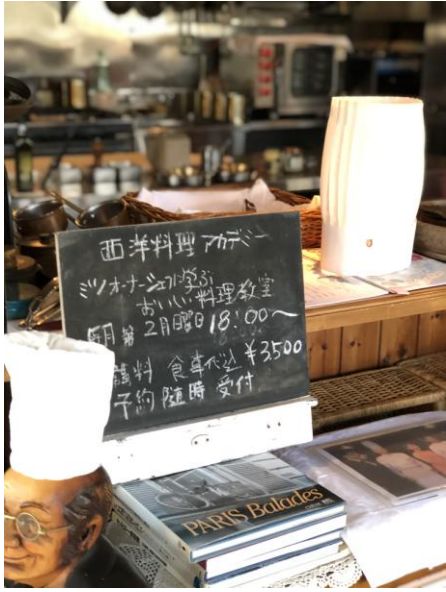 西洋料理 アカデミー
ミツオーナーシェフに学ぶ
おいしい料理教室
毎月第2月曜日 18:00〜
講料 食事代込 ¥3500
予約随時受付
PARIS Balades